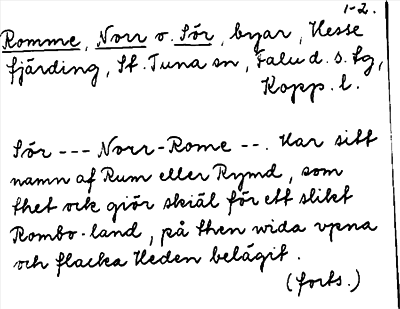 1-2.
Romme, Norr o. Sör, byar, Hesse
fjärding, St. Tuna sn, Falu d. s. fg,
Kopp. l.
Sör --- Norr-Rome --. Har sitt
namn af Rum eller Rymd, som
thet ock giör skiäl för ett slikt
Rombo-land, på then wida vpna
och flacka Heden belägit.
(forts.)